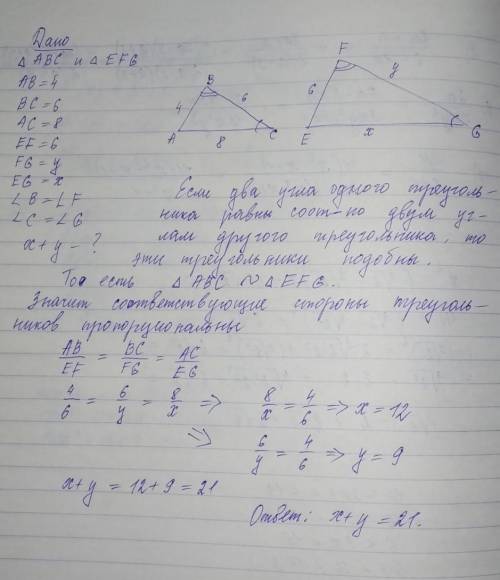 Дано
△ ABC и △ EFG
AB = 4
BC = 6
AC = 8
EF = 6
FG = y
EG = x
∠B = ∠F
∠C = ∠G
x + y - ?
B
4
6
A
8
C
F
6
y
E
x
G
Если два угла одного треуголь-
ника равны соот-но двум уг-
лам другого треугольника, то
эти треугольники подобны.
То есть △ ABC ∾ △ EFG.
Значит соответствующие стороны треуголь-
ников пропорциональны
AB/EF = BC/FG = AC/EG
4/6 = 6/y = 8/x ⇒ 8/x = 4/6 ⇒ x = 12
⇒ 6/y = 4/6 ⇒ y = 9
x + y = 12 + 9 = 21
Ответ: x + y = 21.